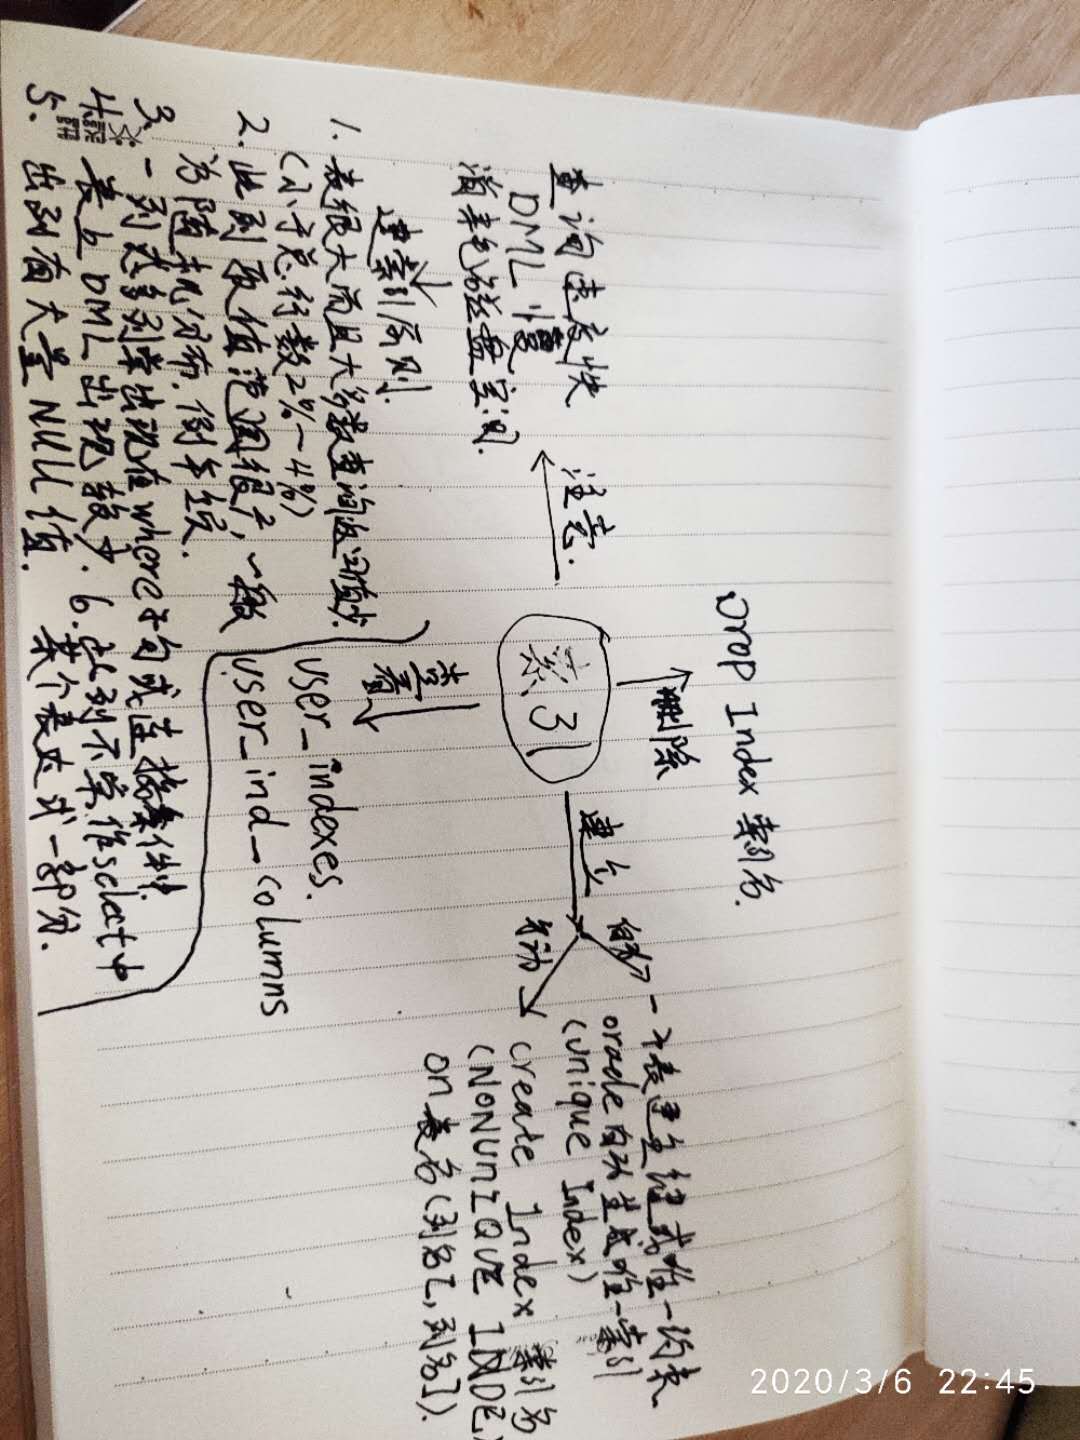 Drop Index 索引名.
删除
注意.
查询速度快
DML 慢
消耗磁盘空间.
索引
建立
自动
一个表建主键或唯一约束
oracle自动生成唯一索引
(unique Index)
手动
create Index 索引名
(NONUNIQUE INDEX
on 表名(列名[,列名]).
查看
user_indexes.
user_ind_columns
建索引原则.
1. 表很大而且大多数查询返回值少
(小于总行数2%-4%)
2. 此列取值范围很广, 一般
为随机分布.
3. 一列或多列常出现在where子句或连接条件中.
4. 表上DML出现较少.
5. 此列有大量NULL值.
6. 此列不常作select中
某个表达式一部分.
2020/3/6 22:45